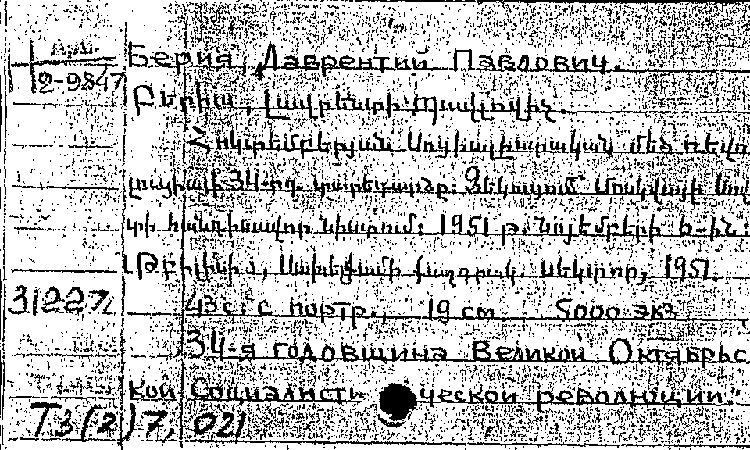 Арм.
2-9847
Берия, Лаврентий Павлович.
Բերիա, Լավրենտի Պավլովիչ.
Հոկտեմբերյան Սոցիալիստական մեծ ռեվո
լուցիայի 34-րդ տարեդարձը: Զեկուցում Մոսկվայի Սով
տի հանդիսավոր նիստում: 1951 թ. նոյեմբերի 6-ին:
Թբիլիսի, քաղգրակ. սեկտոր, 1951.
31227
43 с. с портр., 19 см. 5000 экз
34-я годовщина Великой Октябрьс
кой Социалистической революции."
Т3(2)7, 021